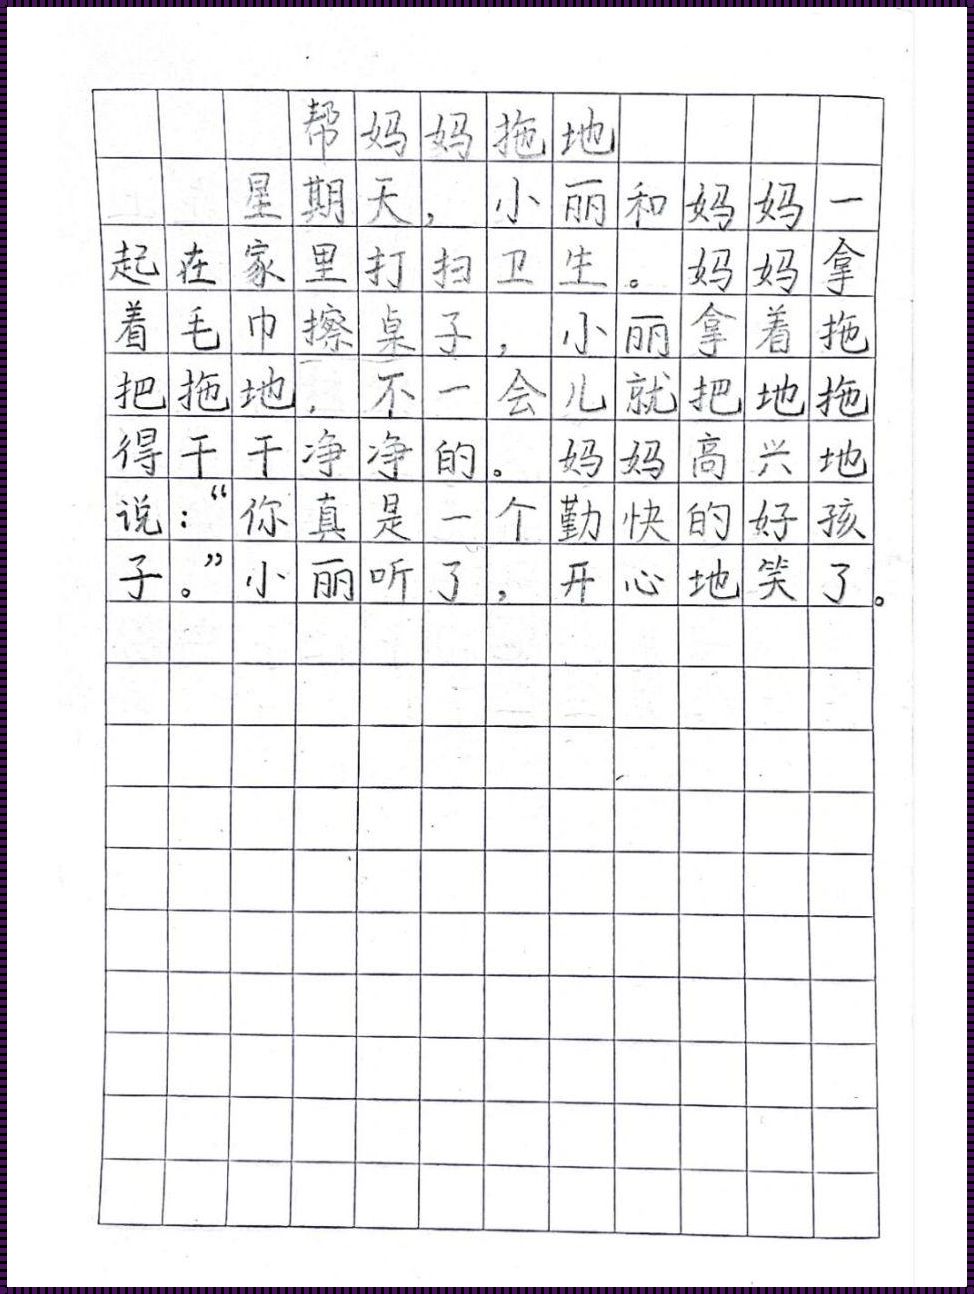 帮妈妈拖地
星期天，小丽和妈妈一
起在家里打扫卫生。妈妈拿
着毛巾擦桌子，小丽拿着拖
把拖地，不一会儿就把地拖
得干干净净的。妈妈高兴地
说：“你真是一个勤快的好孩
子。”小丽听了，开心地笑了。